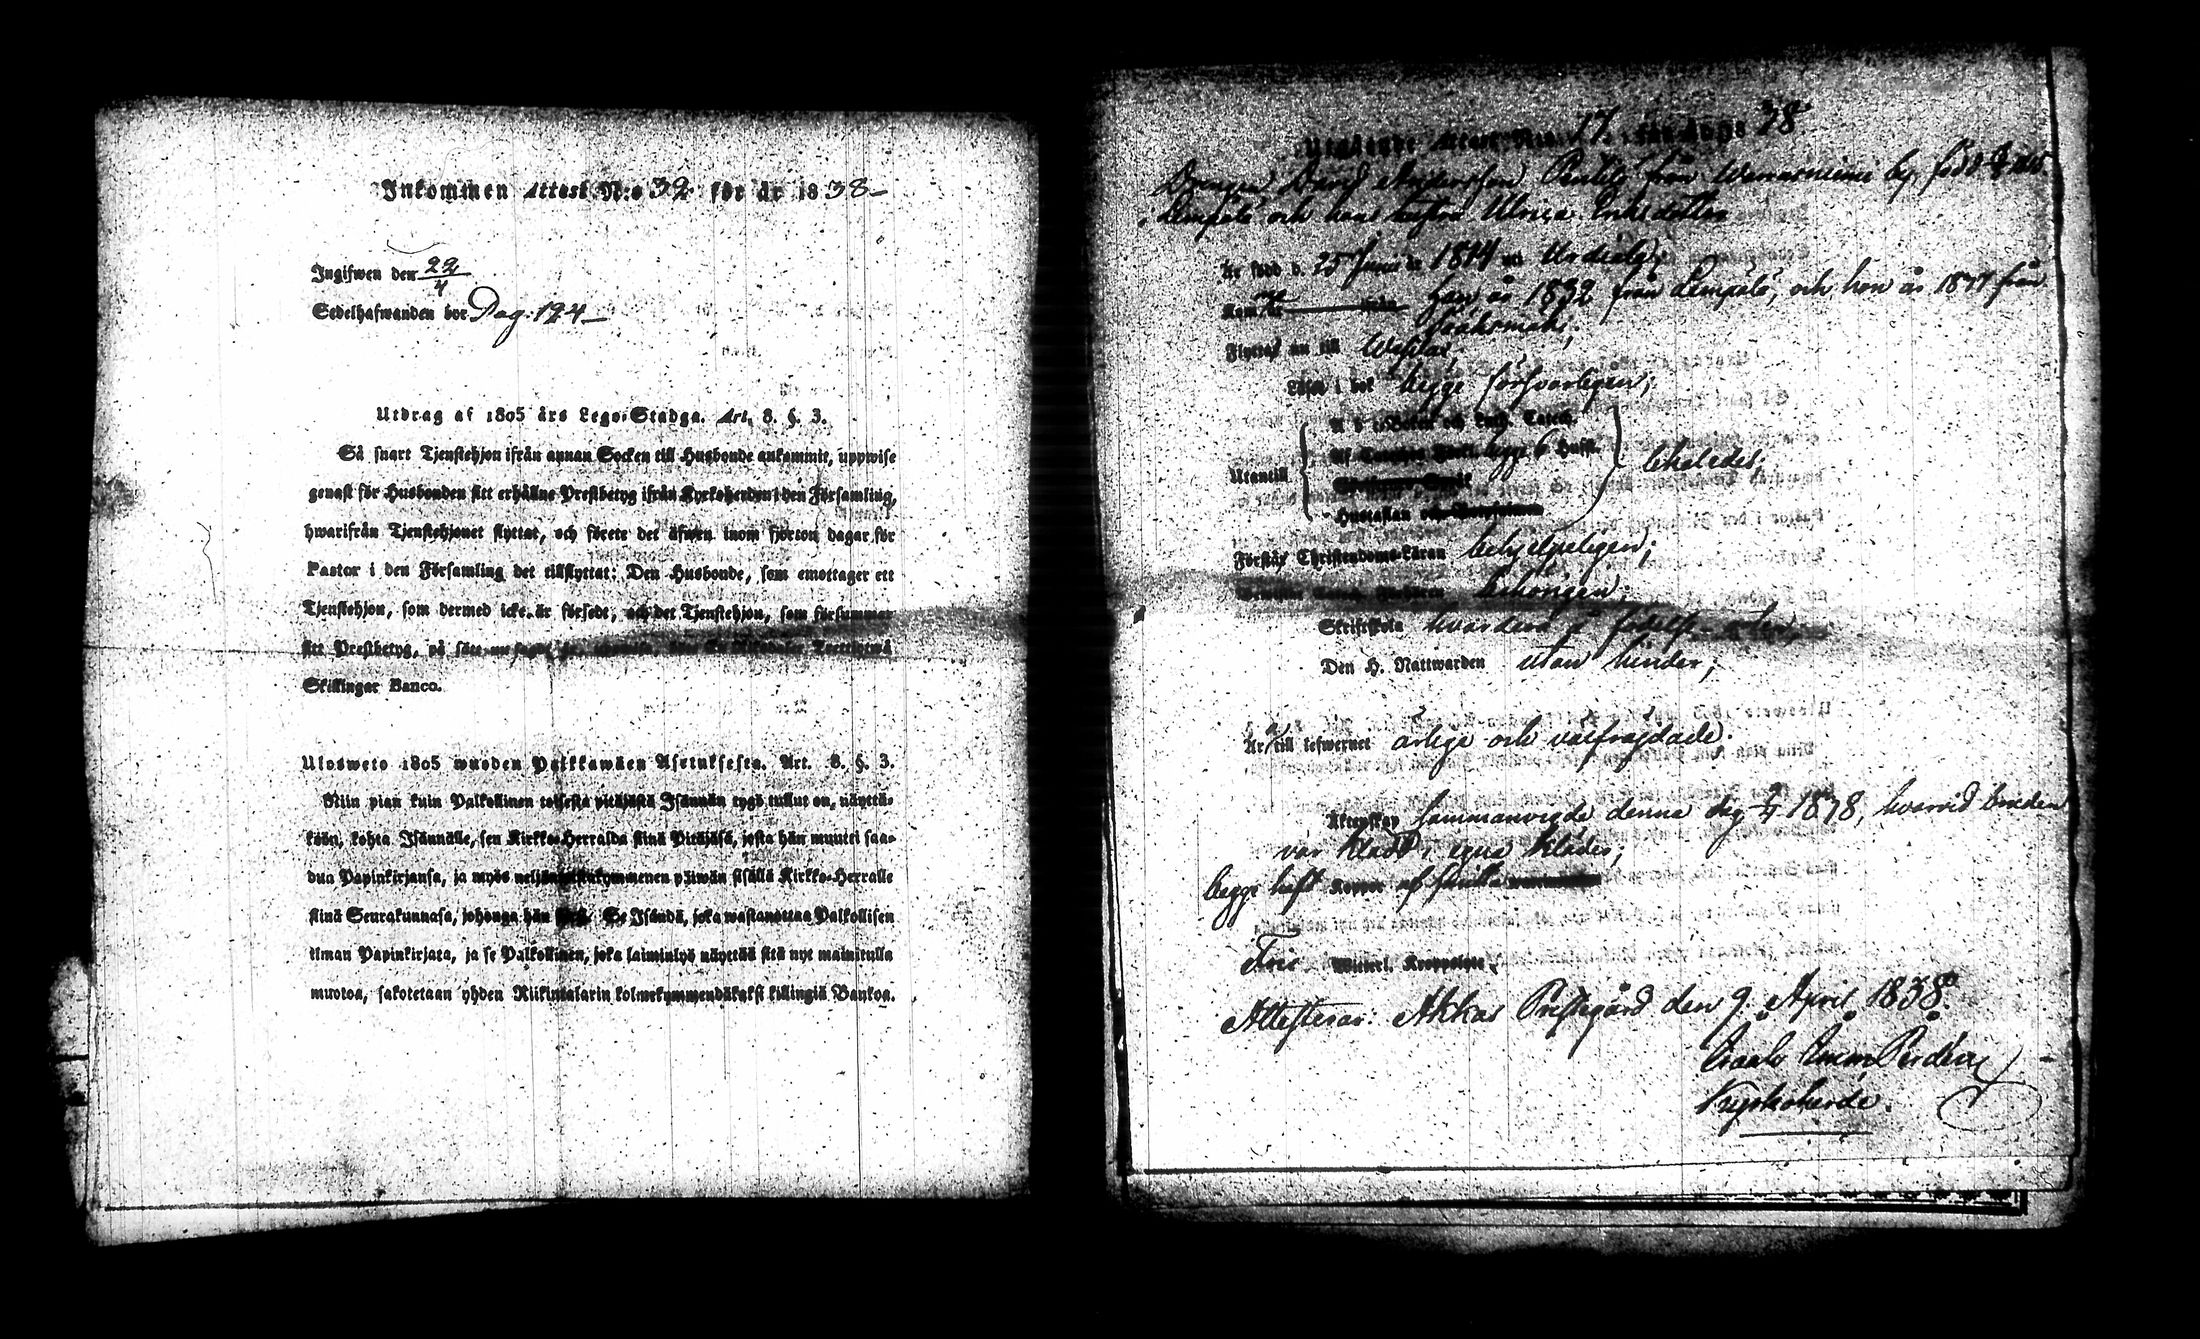 Inkommen Attest N:o 32 för år 1838
Ingifwen den 22/4
Sedelhafwanden bor Pag: 124
Utdrag af 1805 års Lego-Stadga. Art. 8. §. 3.
Så snart Tjenstehjon ifrån annan Socken till Husbonde ankommit, uppwise
genast för Husbonden sitt erhållne Prestbetyg ifrån Kyrkoherden i den Församling,
hwarifrån Tjenstehjonet flyttat, och förete det äfwen inom fjorton dagar för
Pastor i den Församling det tillflyttat: Den Husbonde, som emottager ett
Tjenstehjon, som dermed icke är försedt, och det Tjenstehjon, som försummar
sitt Prestbetyg, på sätt nu sagdt är, uppwisa, böte En Riksdaler Trettiotwå
Skillingar Banco.
Ulosweto 1805 wuoden Palkkawäen Asetuksesta. Art. 8. §. 3.
Niin pian kuin Palkollinen toisesta pitäjästä Isännän tygö tullut on, näyttä-
köön, kohta Isännälle, sen Kirkko-Herralda siinä Pitäjäsä, josta hän muutti saa-
dun Papinkirjansa, ja myös neljäntoistakymmenen päiwän sisällä Kirkko-Herralle
siinä Seurakunnasa, johonga hän Se Isändä, joka wastanottaa Palkollisen
ilman Papinkirjata, ja se Palkollinen, joka laiminlyö näyttää sitä nyt mainitulla
muotoa, sakotetaan yhden Riikintalarin kolmekymmendäkaksi killingiä Bankoa.
Utgående Attest N:o 17. för år 1838
Drengen David Andersson Penttilä från by, född
Lempälä och hans hustru Ulrica Eriksdotter
Är född d. 25 Junii år 1814 uti Urdiala;
Kom år han år 1832 från Lempälä, och hon år från
Flyttar nu till
Läser i bok begge försvarligen;
Utantill
A b c-Boken och enf. Catech.
Af Catechis Förkl. begge 6 Hufst.
Hustaflan och
Förstår Christendoms-Läran behjelpeligen;
behörigen;
Skriftskola
Den H. Nattwarden utan hinder;
Är till lefwernet ärlige och välfräjdade.
Äktenskap sammanvigde denna dag 1838, hvarvid bruden
var klädd i egna kläder;
begge haft Koppor af
Frie Wittterl. Kroppslyte.
Attesterar: Akkas Prestgård den 9. April 1838.
Kyrkoherde.